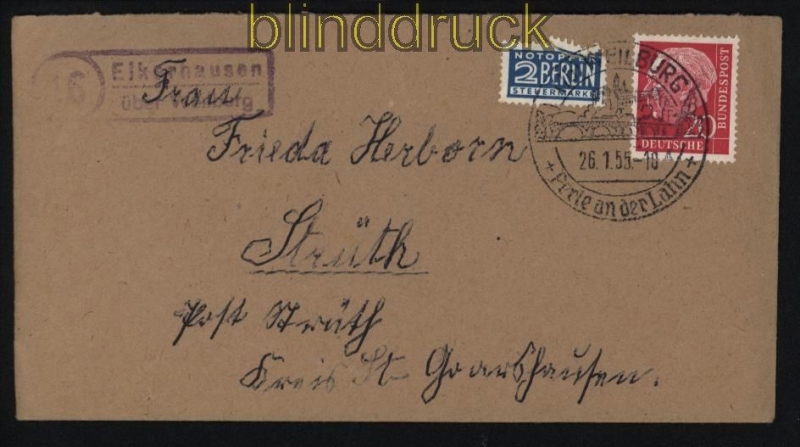 blinddruck
16
Elkerhausen
über Weilburg
NOTOPFER
2 BERLIN
STEUERMARKE
WEILBURG
26.1.55.-18
+ Perle an der Lahn +
20
DEUTSCHE
BUNDESPOST
Frau
Frieda Herborn
Strüth
Post Strüth
Kreis St. Goarshausen.